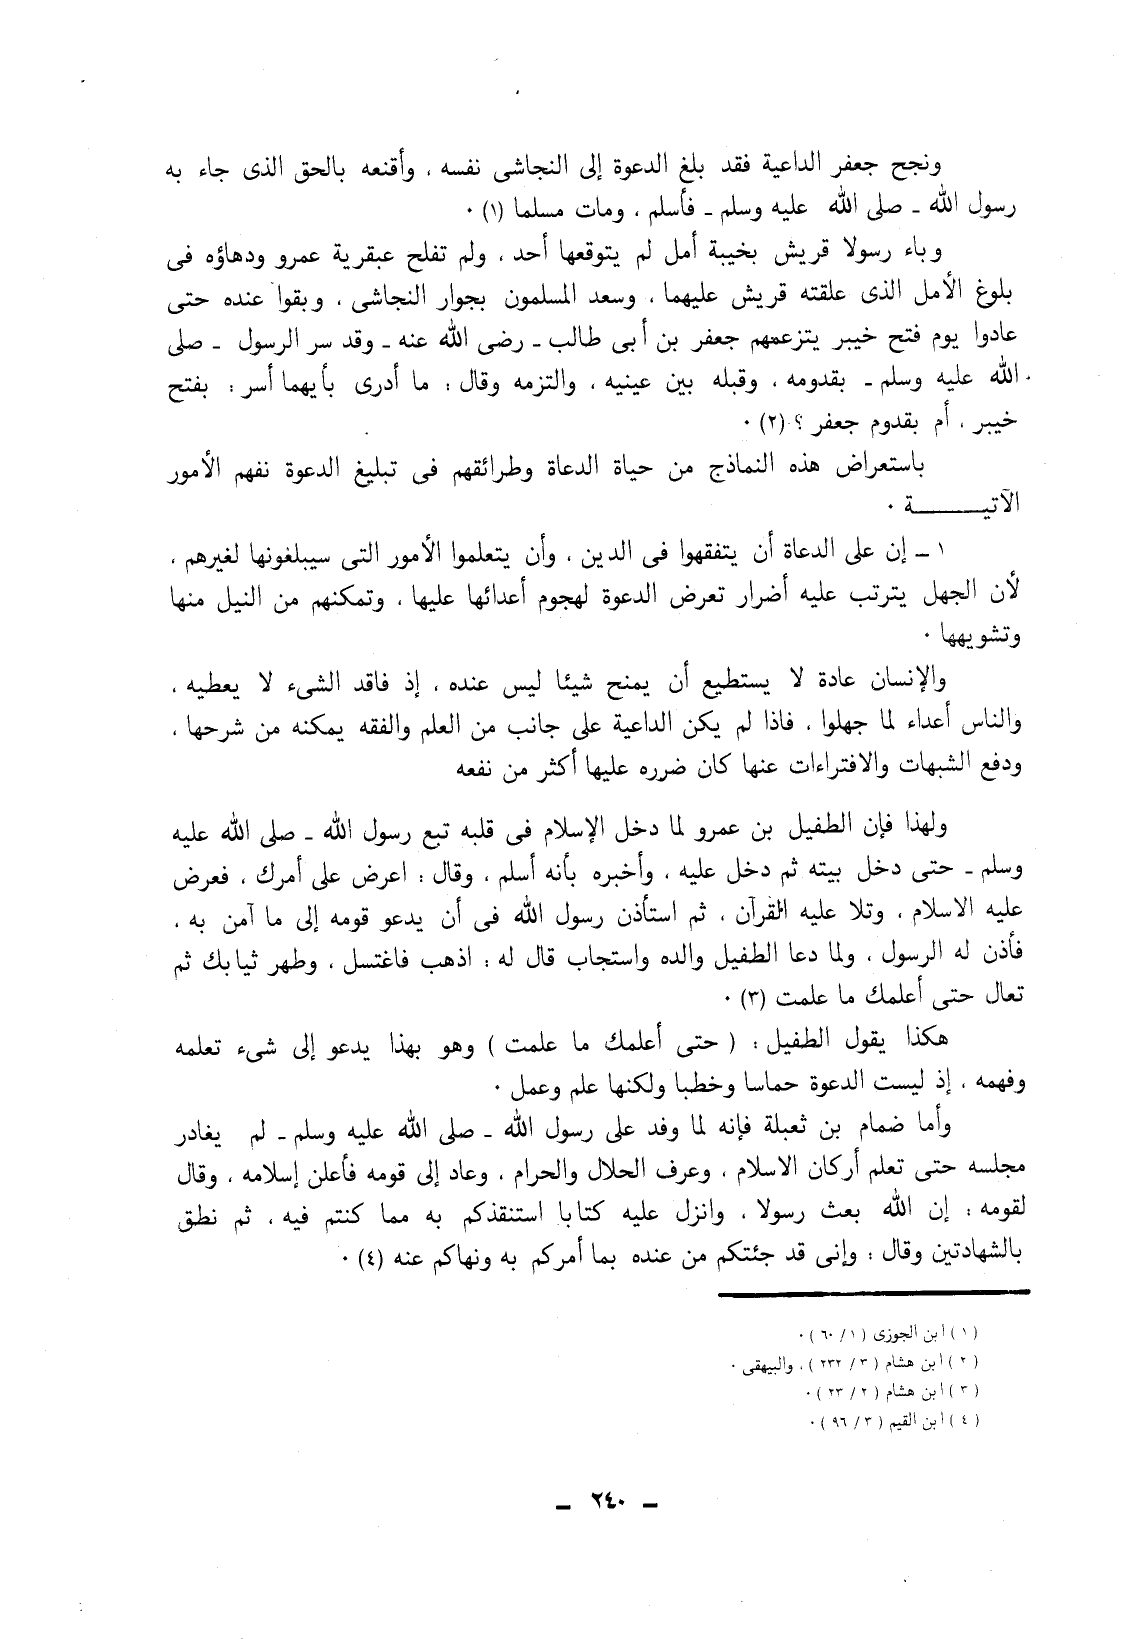 ونجح جعفر الداعية فقد بلغ الدعوة إلى النجاشى نفسه ، وأقنعه بالحق الذى جاء به
رسول الله ـ صلى الله عليه وسلم ـ فأسلم ، ومات مسلما (١) ٠
وباء رسولا قريش بخيبة أمل لم يتوقعها أحد ، ولم تفلح عبقرية عمرو ودهاؤه فى
بلوغ الأمل الذى علقته قريش عليهما ، وسعد المسلمون بجوار النجاشى ، وبقوا عنده حتى
عادوا يوم فتح خيبر يتزعمهم جعفر بن أبى طالب ـ رضى الله عنه ـ وقد سر الرسول ـ صلى
الله عليه وسلم ـ بقدومه ، وقبله بين عينيه ، والتزمه وقال : ما أدرى بأيهما أسر : بفتح
خيبر ، أم بقدوم جعفر ؟ (٢) ٠
باستعراض هذه النماذج من حياة الدعاة وطرائقهم فى تبليغ الدعوة نفهم الأمور
الآتيـــــــة ٠
١ ـ إن على الدعاة أن يتفقهوا فى الدين ، وأن يتعلموا الأمور التى سيبلغونها لغيرهم ،
لأن الجهل يترتب عليه أضرار تعرض الدعوة لهجوم أعدائها عليها ، وتمكنهم من النيل منها
وتشويهها ٠
والإنسان عادة لا يستطيع أن يمنح شيئا ليس عنده ، إذ فاقد الشىء لا يعطيه ،
والناس أعداء لما جهلوا ، فاذا لم يكن الداعية على جانب من العلم والفقه يمكنه من شرحها ،
ودفع الشبهات والافتراءات عنها كان ضرره عليها أكثر من نفعه
ولهذا فإن الطفيل بن عمرو لما دخل الإسلام فى قلبه تبع رسول الله ـ صلى الله عليه
وسلم ـ حتى دخل بيته ثم دخل عليه ، وأخبره بأنه أسلم ، وقال : اعرض على أمرك ، فعرض
عليه الاسلام ، وتلا عليه القرآن ، ثم استأذن رسول الله فى أن يدعو قومه إلى ما آمن به ،
فأذن له الرسول ، ولما دعا الطفيل والده واستجاب قال له : اذهب فاغتسل ، وطهر ثيابك ثم
تعال حتى أعلمك ما علمت (٣) ٠
هكذا يقول الطفيل : ( حتى أعلمك ما علمت ) وهو بهذا يدعو إلى شىء تعلمه
وفهمه ، إذ ليست الدعوة حماسا وخطبا ولكنها علم وعمل ٠
وأما ضمام بن ثعبلة فإنه لما وفد على رسول الله ـ صلى الله عليه وسلم ـ لم يغادر
مجلسه حتى تعلم أركان الاسلام ، وعرف الحلال والحرام ، وعاد إلى قومه فأعلن إسلامه ، وقال
لقومه : إن الله بعث رسولا ، وانزل عليه كتابا استنقذكم به مما كنتم فيه ، ثم نطق
بالشهادتين وقال : وإنى قد جئتكم من عنده بما أمركم به ونهاكم عنه (٤) ٠
(١) ابن الجوزى (١/ ٦٠) ٠
(٢) ابن هشام (٣/ ٢٣٢) ، والبيهقى ٠
(٣) ابن هشام (٢/ ٢٣) ٠
(٤) ابن القيم (٣/ ٩٦) ٠
ـ ٢٤٠ ـ